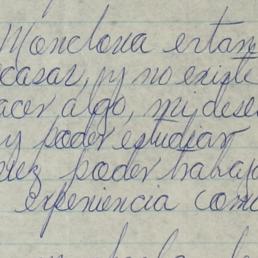 Monclova estan
casar, y no existe
acer algo, mi dese
y poder estudiar
vez poder trabaja
experiencia como